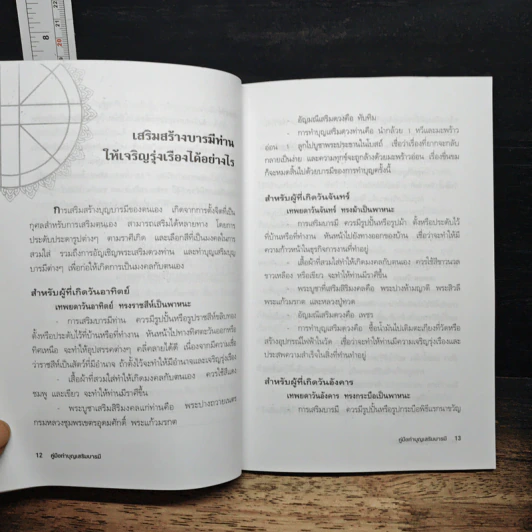 8
20
21
เสริมสร้างบารมีท่าน
ให้เจริญรุ่งเรืองได้อย่างไร
การเสริมสร้างบุญบารมีของตนเอง เกิดจากการตั้งจิตที่เป็น
กุศลสำหรับการเสริมตนเอง สามารถเสริมได้หลายทาง โดยการ
ประดับประดารูปต่างๆ ตามราศีเกิด และเลือกสีที่เป็นมงคลในการ
สวมใส่ รวมถึงการอัญเชิญพระเสริมดวงท่าน และทำบุญเสริมบุญ
บารมีต่างๆ เพื่อก่อให้เกิดการเป็นมงคลกับตนเอง
สำหรับผู้ที่เกิดวันอาทิตย์
เทพยดาวันอาทิตย์ ทรงราชสีห์เป็นพาหนะ
- การเสริมบารมีท่าน ควรมีรูปปั้นหรือรูปราชสีห์
ตั้งหรือประดับไว้ที่บ้านหรือที่ทำงาน หันหน้าไปทางทิศตะวันออกหรือ
ทิศเหนือ จะทำให้อุปสรรคต่างๆ คลี่คลายได้ดี เนื่องจากมีความเชื่อ
ว่าราชสีห์เป็นสัตว์ที่มีอำนาจ ถ้าตั้งไว้จะทำให้มีอำนาจและเจริญรุ่งเรือง
- เสื้อผ้าที่สวมใส่ทำให้เกิดมงคลกับตนเอง ควรใช้สีแดง
ชมพู และเขียว จะทำให้ท่านมีราศีขึ้น
- พระบูชาเสริมสิริมงคลแก่ท่านคือ พระปางถวายเนตร
กรมหลวงชุมพรเขตรอุดมศักดิ์ พระแก้วมรกต
12 คู่มือทำบุญเสริมบารมี
อัญมณีเสริมดวงคือ ทับทิม
- การทำบุญเสริมดวงท่านคือ นำกล้วย 1 หวีและมะพร้าว
อ่อน 1 ลูกไปบูชาพระประธานในโบสถ์ เชื่อว่าเรื่องที่ยากจะกลับ
กลายเป็นง่าย และความทุกข์จะถูกล้างด้วยมะพร้าวอ่อน เรื่องขื่นขม
ก็จะหมดสิ้นไปด้วยบารมีของการทำบุญครั้งนี้
สำหรับผู้ที่เกิดวันจันทร์
เทพยดาวันจันทร์ ทรงม้าเป็นพาหนะ
- การเสริมบารมี ควรมีรูปปั้นหรือรูปม้า ตั้งหรือประดับไว้
ที่บ้านหรือที่ทำงาน หันหน้าไปยังทางออกของบ้าน เชื่อว่าจะทำให้มี
ความก้าวหน้าในธุรกิจการงานที่ทำอยู่
- เสื้อผ้าที่สวมใส่ทำให้เกิดมงคลกับตนเอง ควรใช้สีขาวนวล
ขาวเหลือง หรือเขียว จะทำให้ท่านมีราศีขึ้น
- พระบูชาเสริมสิริมงคลคือ พระปางห้ามญาติ พระสิวลี
พระแก้วมรกต และหลวงปู่ทวด
- อัญมณีเสริมดวงคือ เพชร
- การทำบุญเสริมดวงคือ ซื้อน้ำมันไปเติมตะเกียงที่วัดหรือ
สร้างอุปกรณ์ไฟฟ้าในวัด เชื่อว่าจะทำให้ท่านมีความเจริญรุ่งเรืองและ
ประสพความสำเร็จในสิ่งที่ท่านทำอยู่
สำหรับผู้ที่เกิดวันอังคาร
เทพยดาวันอังคาร ทรงกระบือเป็นพาหนะ
- การเสริมบารมี ควรมีรูปปั้นหรือรูปกระบือ
คู่มือทำบุญเสริมบารมี 13